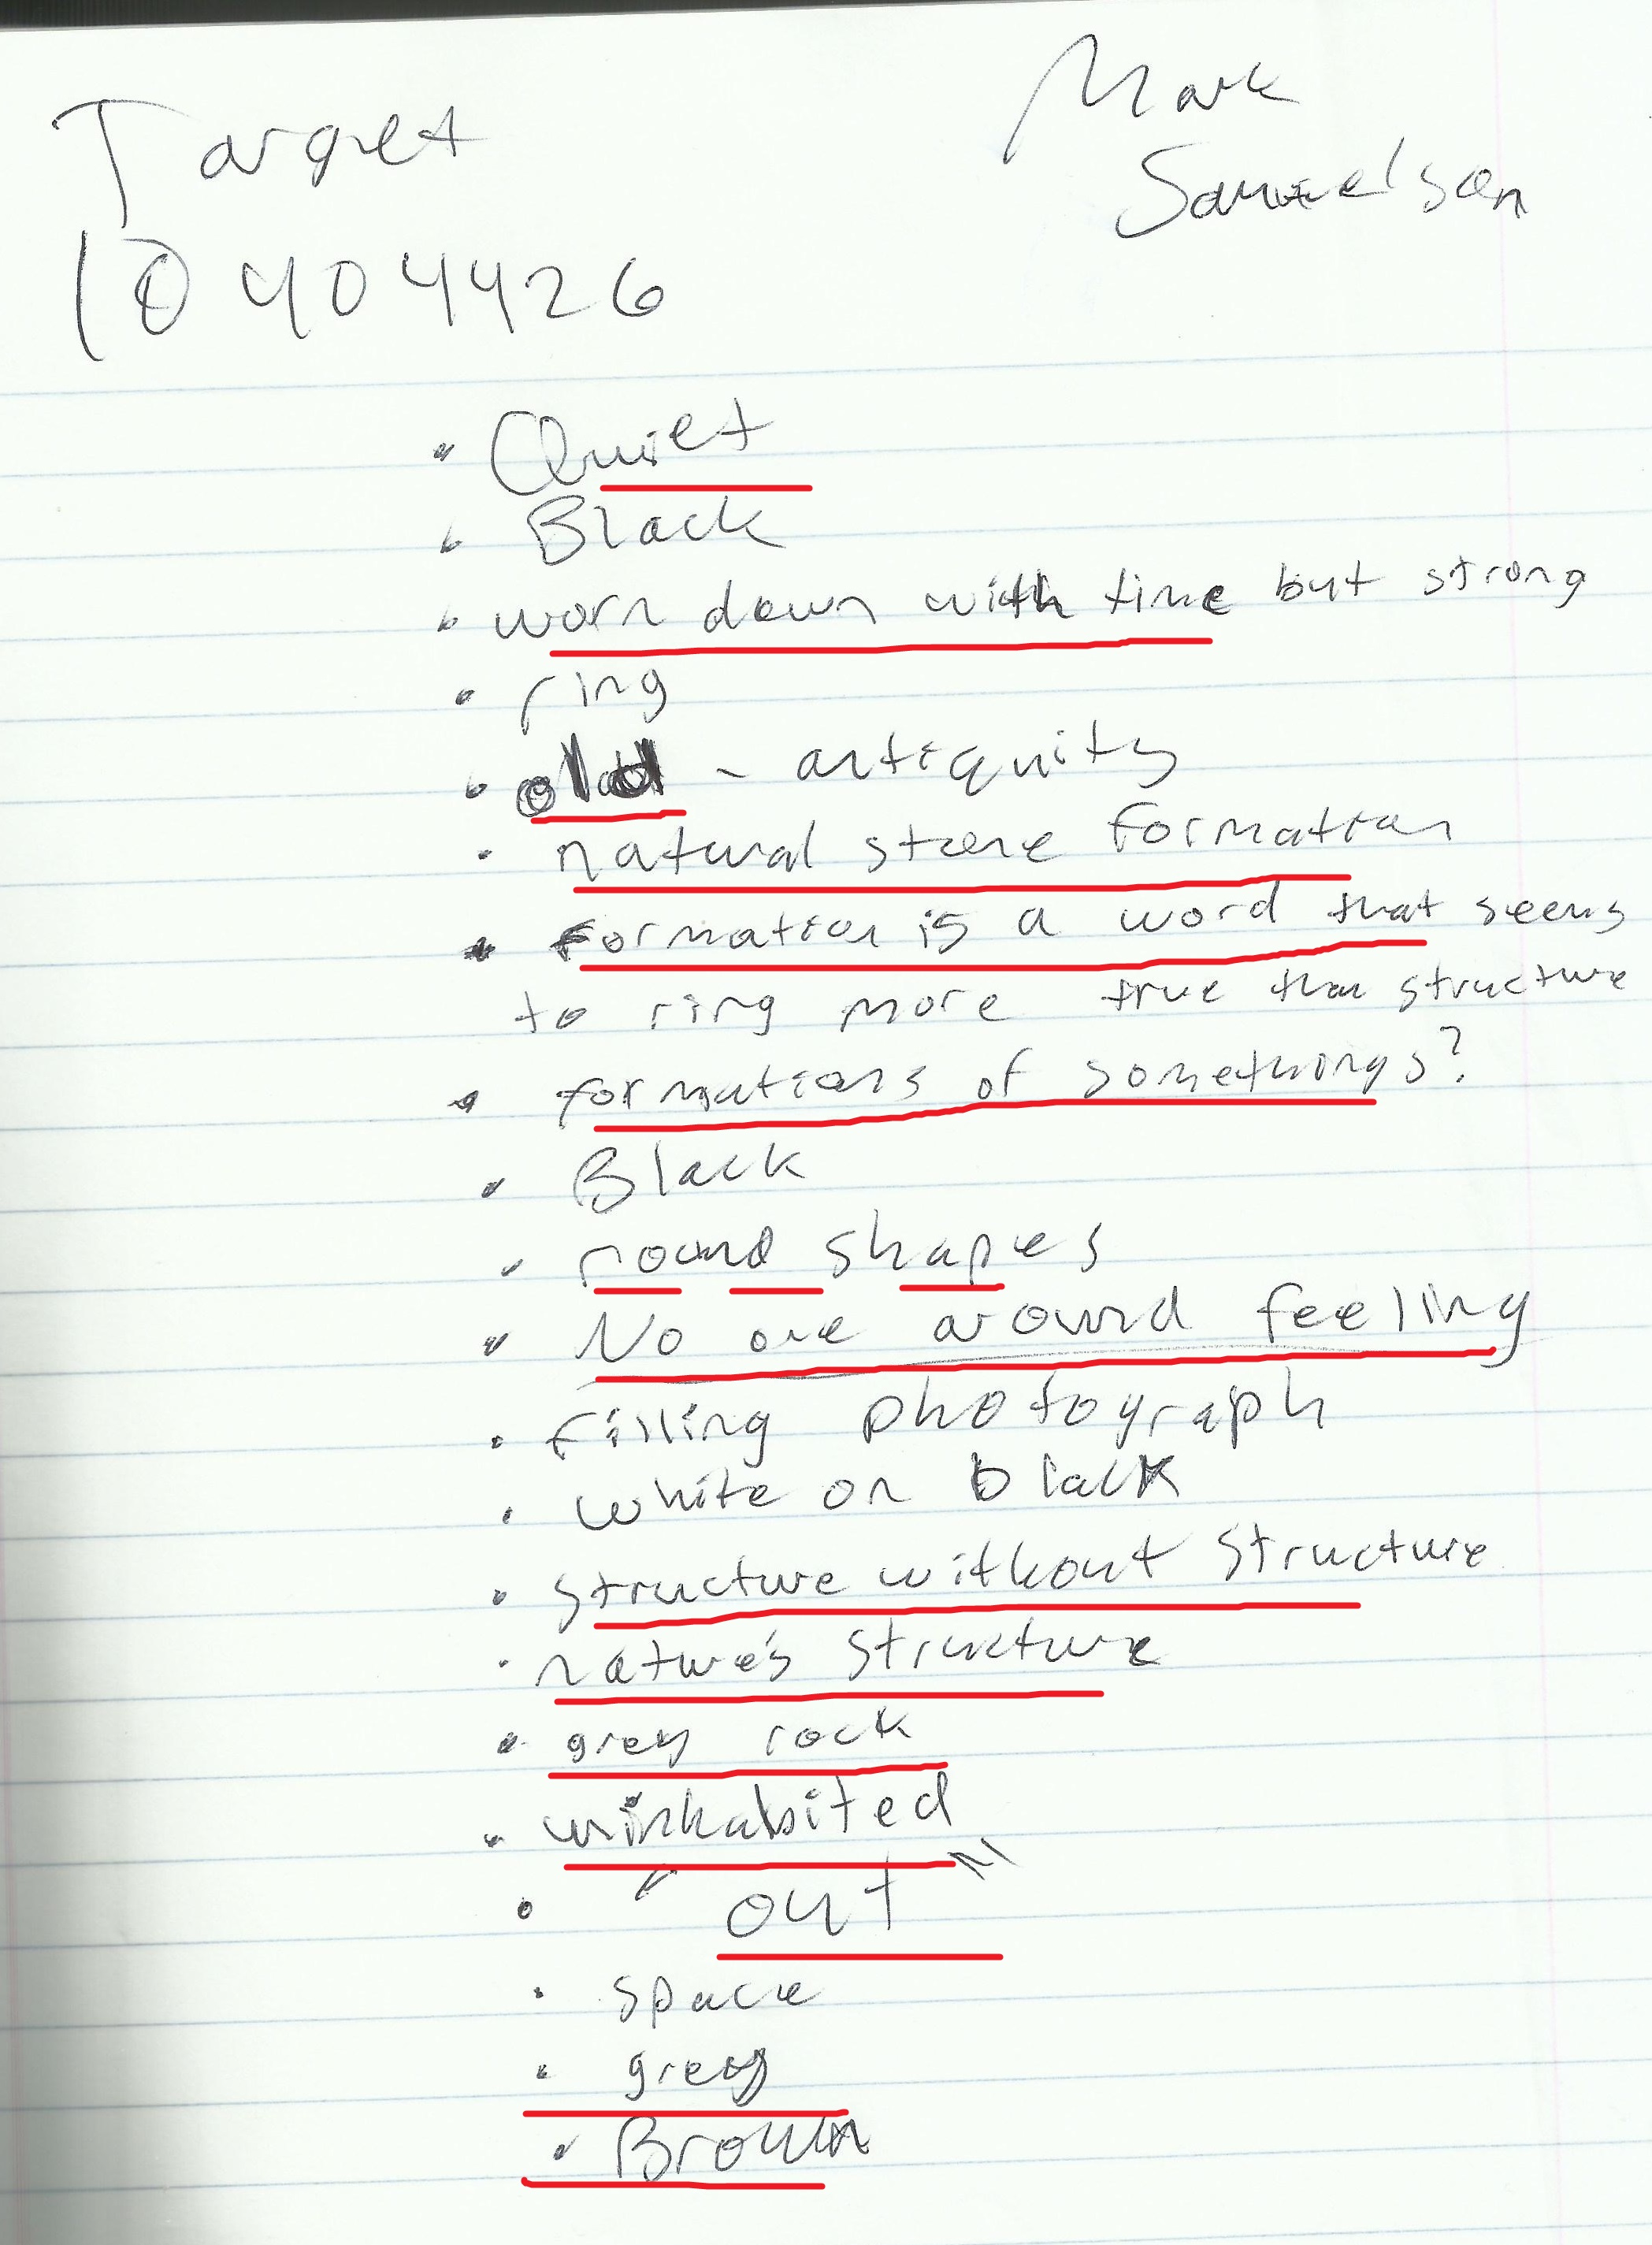 Target
Mark
Samuelson
10404426
• Quiet
• Black
• worn down with time but strong
• ring
• old - antiquity
• natural stone formation
• formation is a word that seems
to ring more true than structure
• formations of somethings?
• Black
• round shapes
• No one around feeling
• filling photograph
• white on black
• structure without structure
• nature's structure
• grey rock
• uninhabited
• "out"
• space
• grey
• Brown